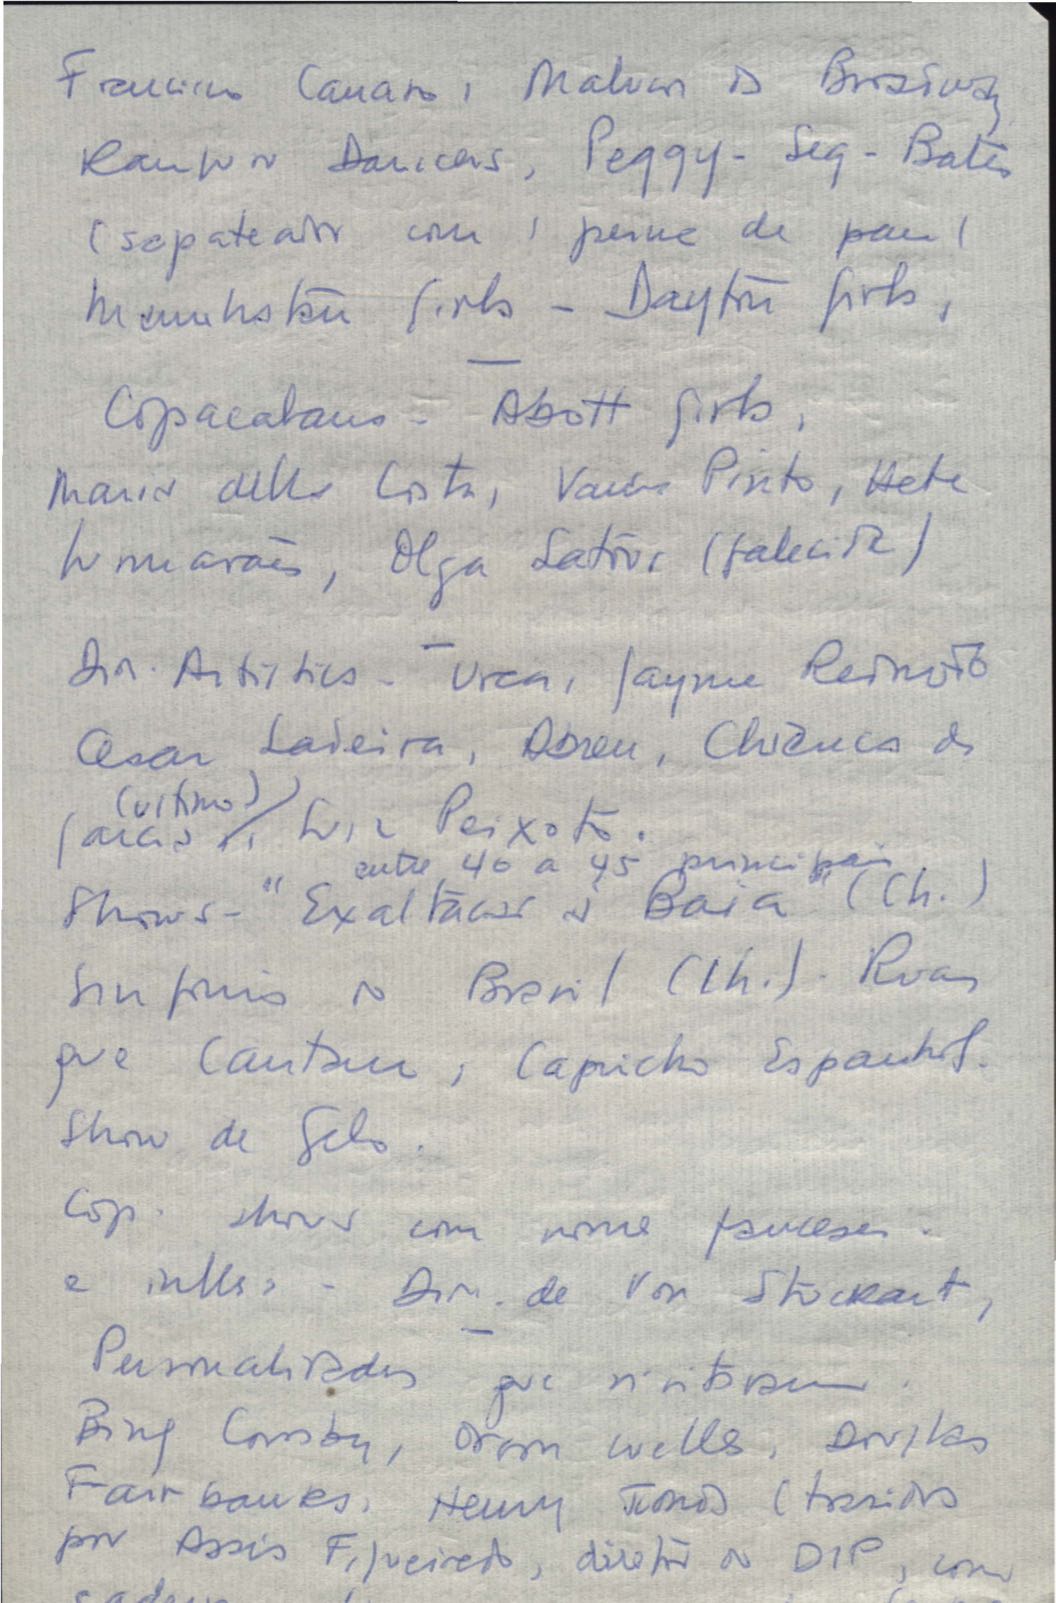 Francisco Canaro, Malvas do Broadway
Dancers, Peggy - Leg - Bates
(sapateador com 1 perna de pau)
Manhatan Girls - Dayton Girls,
—
Copacabana - Abott Girls,
Maria della Costa, Pinto, Hete
Olga Latour (falecida)
—
Dir. Artistica - Urca, Jayme Redondo
Cesar Ladeira, Abreu, Chianca de
(ultimo)
Garcia, Luiz Peixoto.
entre 40 a 45 principais
Shows - "Exaltação à Baia" (Ch.)
Sinfonia do Brasil (Ch.). Ruas
que Cantam, Capricho Espanhol.
Show de Gelo.
Cop. shows com nome frances.
e ingles - Dir. de Von Stuckart,
—
Personalidades que visitaram.
Bing Crosby, Orson Wells, Douglas
Fairbanks, Henry (trazido
por Assis Figueiredo, diretor do DIP, com